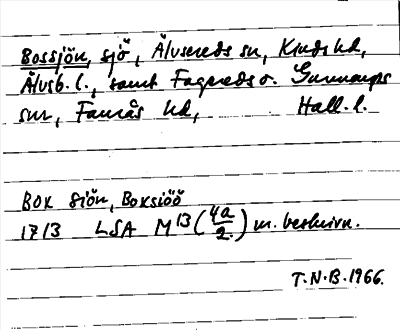 Bossjön, sjö, Älvsereds sn, Kinds hd,
Älvsb. l., samt Fagereds o. Gunnarps
snr, Faurås hd, Hall. l.
Box Siön, Boxsiöö
1713 LSA M 13 (4a/2.) m. beskrivn.
T.N.B. 1966.